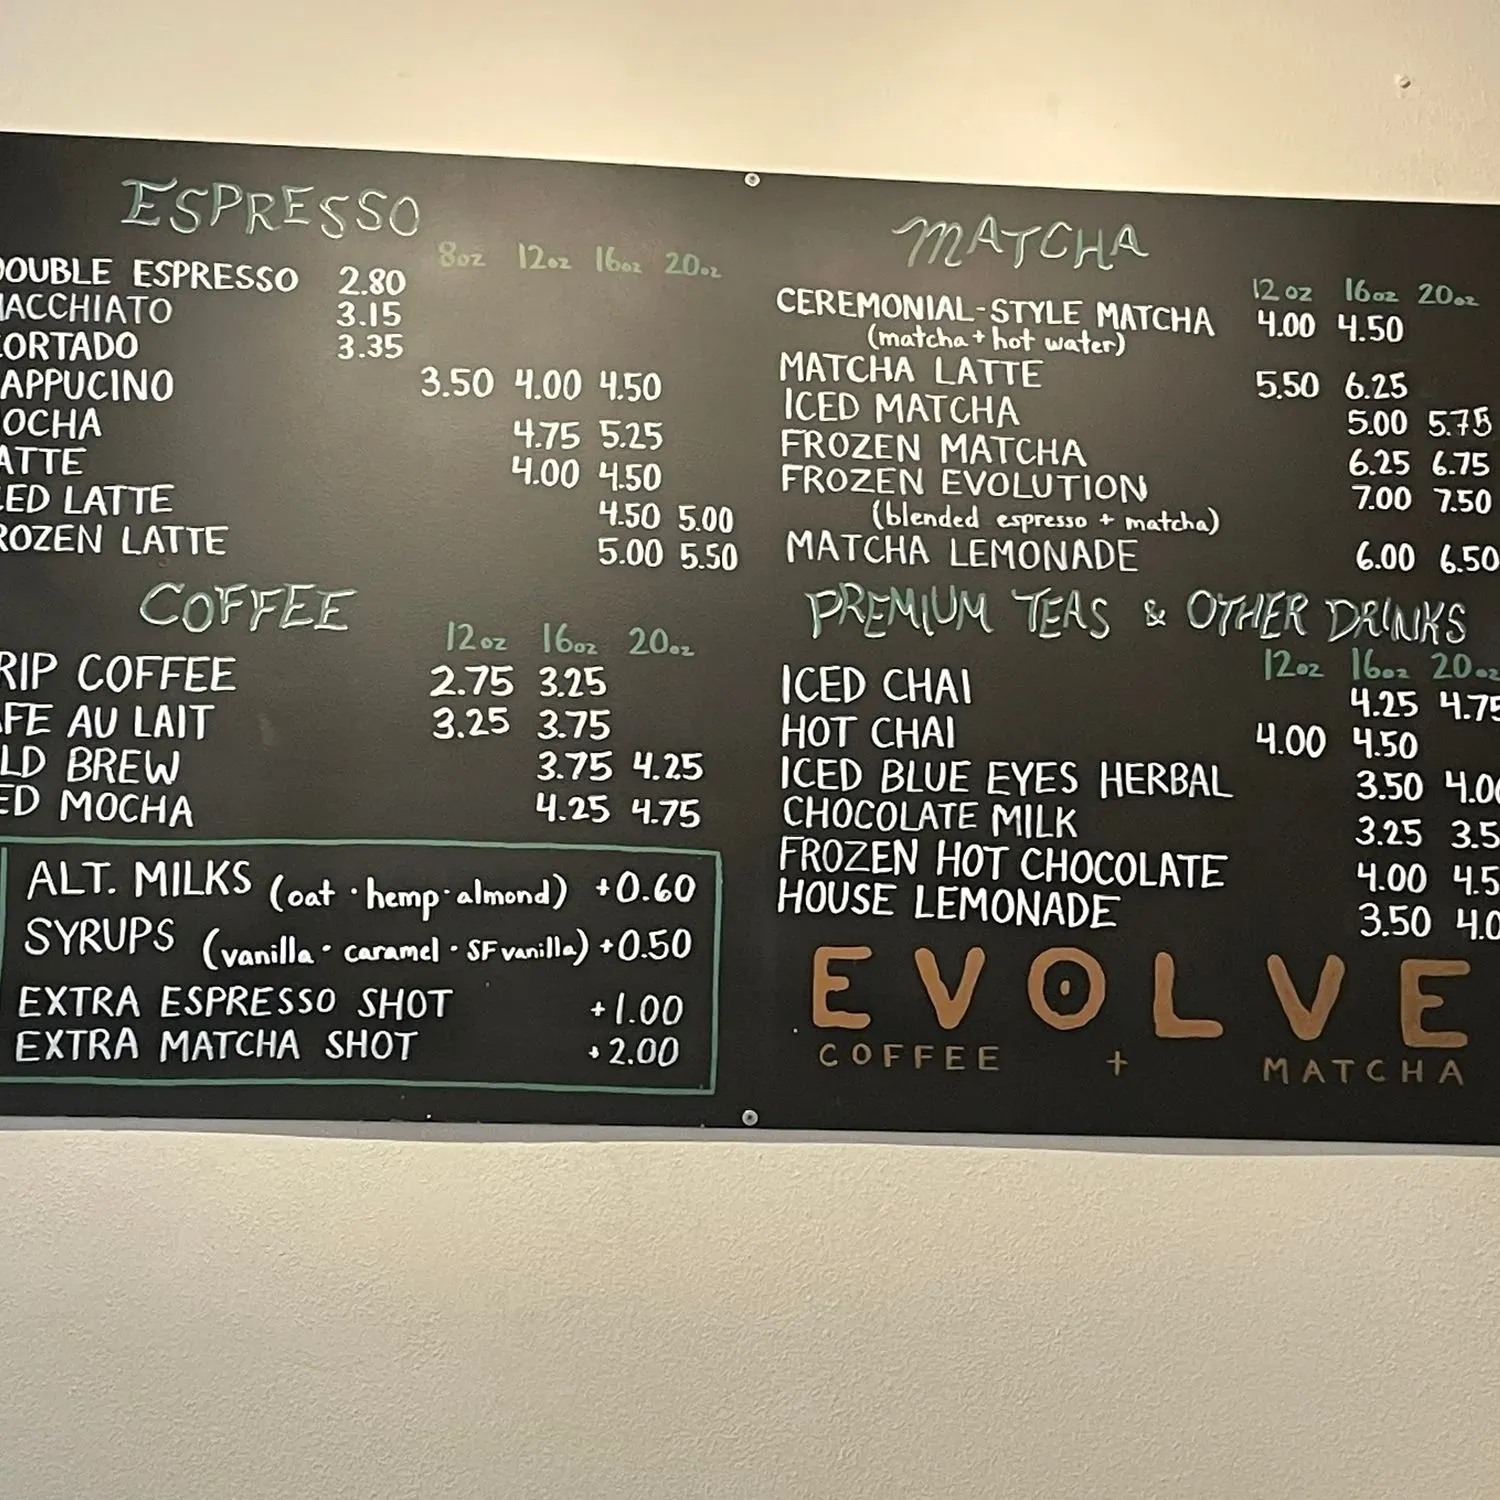 ESPRESSO
8oz 12oz 16oz 20oz
DOUBLE ESPRESSO 2.80
MACCHIATO 3.15
CORTADO 3.35
APPUCINO 3.50 4.00 4.50
OCHA 4.75 5.25
ATTE 4.00 4.50
CED LATTE 4.50 5.00
ROZEN LATTE 5.00 5.50
COFFEE
12oz 16oz 20oz
RIP COFFEE 2.75 3.25
AFE AU LAIT 3.25 3.75
LD BREW 3.75 4.25
ED MOCHA 4.25 4.75
ALT. MILKS (oat · hemp · almond) +0.60
SYRUPS (vanilla · caramel · SF vanilla) +0.50
EXTRA ESPRESSO SHOT +1.00
EXTRA MATCHA SHOT +2.00
MATCHA
12oz 16oz 20oz
CEREMONIAL-STYLE MATCHA 4.00 4.50
(matcha + hot water)
MATCHA LATTE 5.50 6.25
ICED MATCHA 5.00 5.75
FROZEN MATCHA 6.25 6.75
FROZEN EVOLUTION 7.00 7.50
(blended espresso + matcha)
MATCHA LEMONADE 6.00 6.50
PREMIUM TEAS & OTHER DRINKS
12oz 16oz 20oz
ICED CHAI 4.25 4.75
HOT CHAI 4.00 4.50
ICED BLUE EYES HERBAL 3.50 4.00
CHOCOLATE MILK 3.25 3.5
FROZEN HOT CHOCOLATE 4.00 4.5
HOUSE LEMONADE 3.50 4.0
EVOLVE
COFFEE + MATCHA